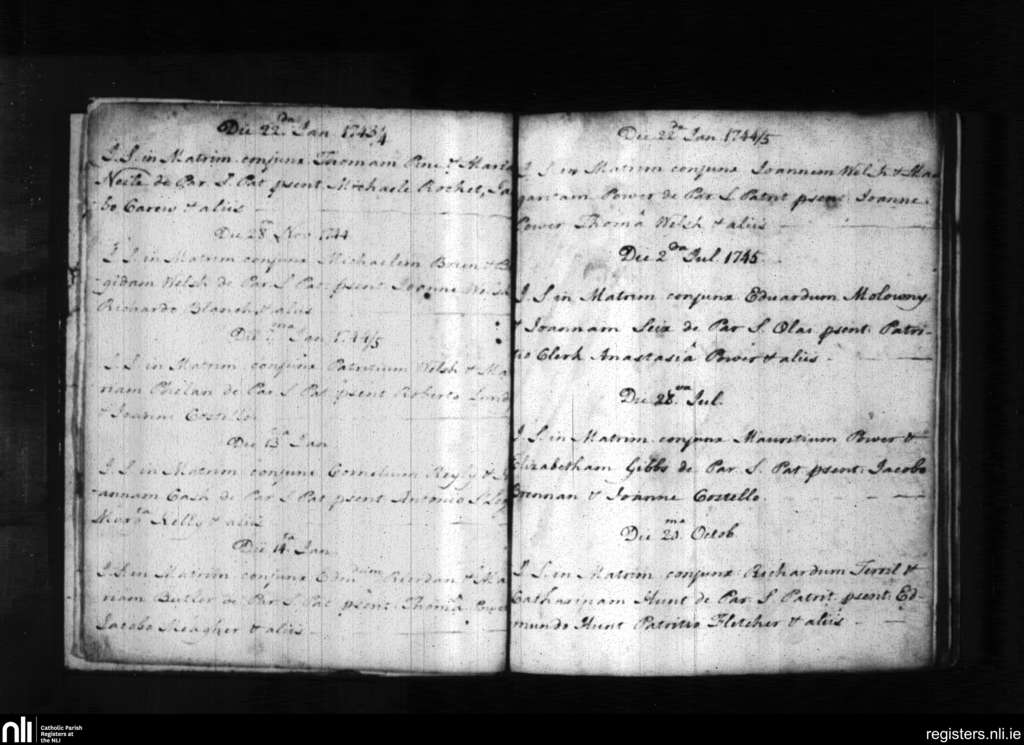 Die 22.da Jan 1743/4
J. S. in Matrim. conjunx Thomam Pine & Maria
Neile de Par S. Pat psent Michaele Rochet, Ja
bo Carew & aliis
Die 28 Nov 1744
J. S. in Matrim conjunx Michaelem Brien & B
gidam Welsh de Par S. Pat psent Joanne Welsh
Ricardo Blanch & aliis
Die Jan 1744/5
J. S. in Matrim conjunx Patritium Welsh & Ma
riam Phelan de Par S. Pat psent Roberto
& Joanne Costello
Die 13a Jan
J. S. in Matrim conjunx Cornelium Reyly & Jo
annam Cash de Par S Pat psent Antonio
Kelly & aliis
Die 14.a Jan
J. S. in Matrim conjunx Edmdum Reordan & Ma
riam Butler de Par S. Pat psent Thomâ Power
Jacobo Meagher & aliis
Die 22da Jan 1744/5
J. S. in Matrim conjunx Joannem Welsh & Ma
garitam Power de Par S. Patrit psent Joanne
Power Thomâ Welsh & aliis
Die 2da Jul. 1745
J. S. in Matrim conjunx Eduardum Molowny
& Joannam Seix de Par S. Olai psent Patri-
tio Clerk Anastasiâ Power & aliis
Die 28.va Jul.
J. S. in Matrim conjunx Mauritium Power &
Elizabetham Gibbs de Par. S. Pat psent. Jacobo
Brennan & Joanne Costello
Die 21.ma Octob
J. S. in Matrim conjunx Richardum Terril &
Catharinam Hunt de Par. S. Patrit. psent. Ed-
mundo Hunt Patritio Fletcher & aliis
nli
Catholic Parish
Registers at
the NLI
registers.nli.ie